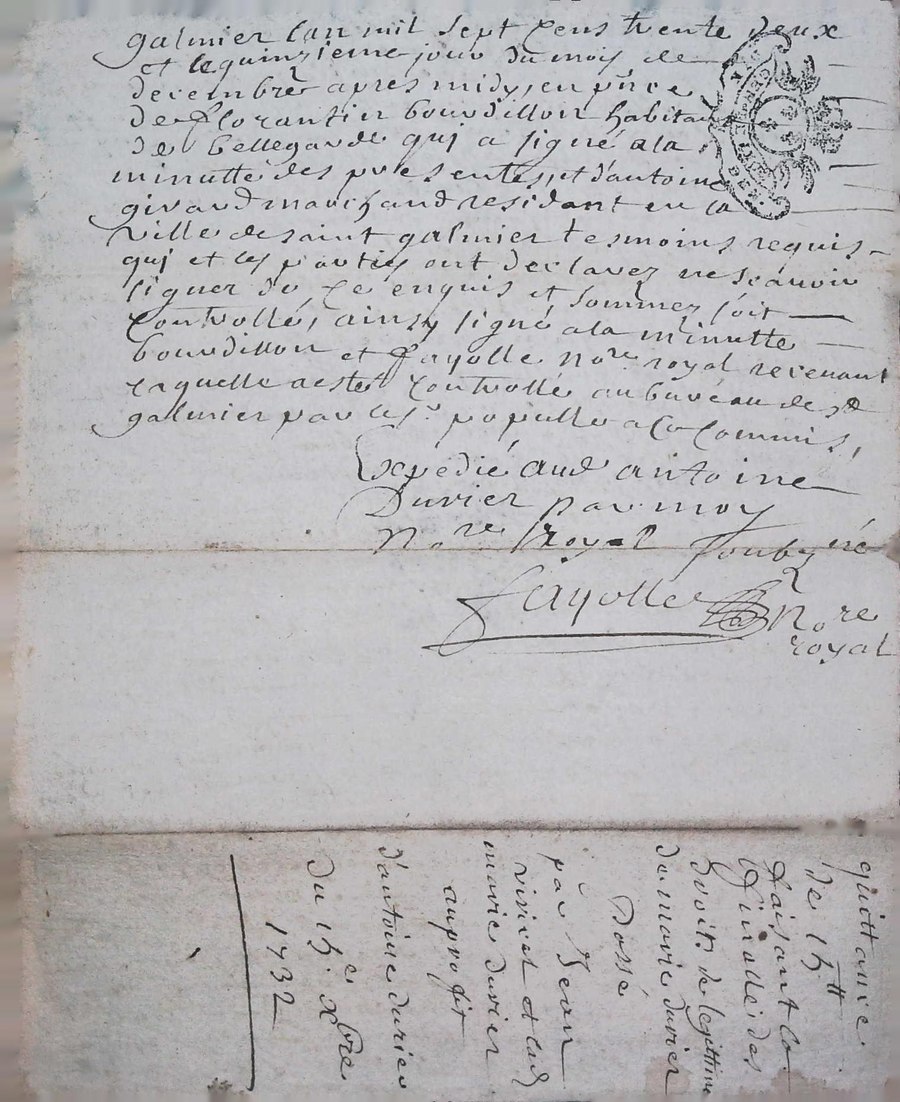 galmier l'an mil sept cens trente deux
et le quinzieme jour du mois de
decembre apres midy, en p̃nce
de florantin bourdillon habitant
de bellegarde qui a signé a la
minutte des presentes, et d'antoine
girard marchand residant en la
ville de saint galmier tesmoins requis
qui et les parties ont declarez ne scavoir
signer de ce enquis et sommez soit
controllé, ainsy signé a la minutte
bourdillon et fayolle no.re royal revenant
laquelle a esté controllé au bureau de st
galmier par le sr populle a la commis,
Expedié aud antoine
Durier par moy
no.re royal soubz né
fayolle no.re
royal
quittance
de 15 tt
faisant la
des
droits de legittime
de marie durier
Dossé
par Jean
et lad
marie durier
au profit
d'antoine durier
du 15.e xbre
1732